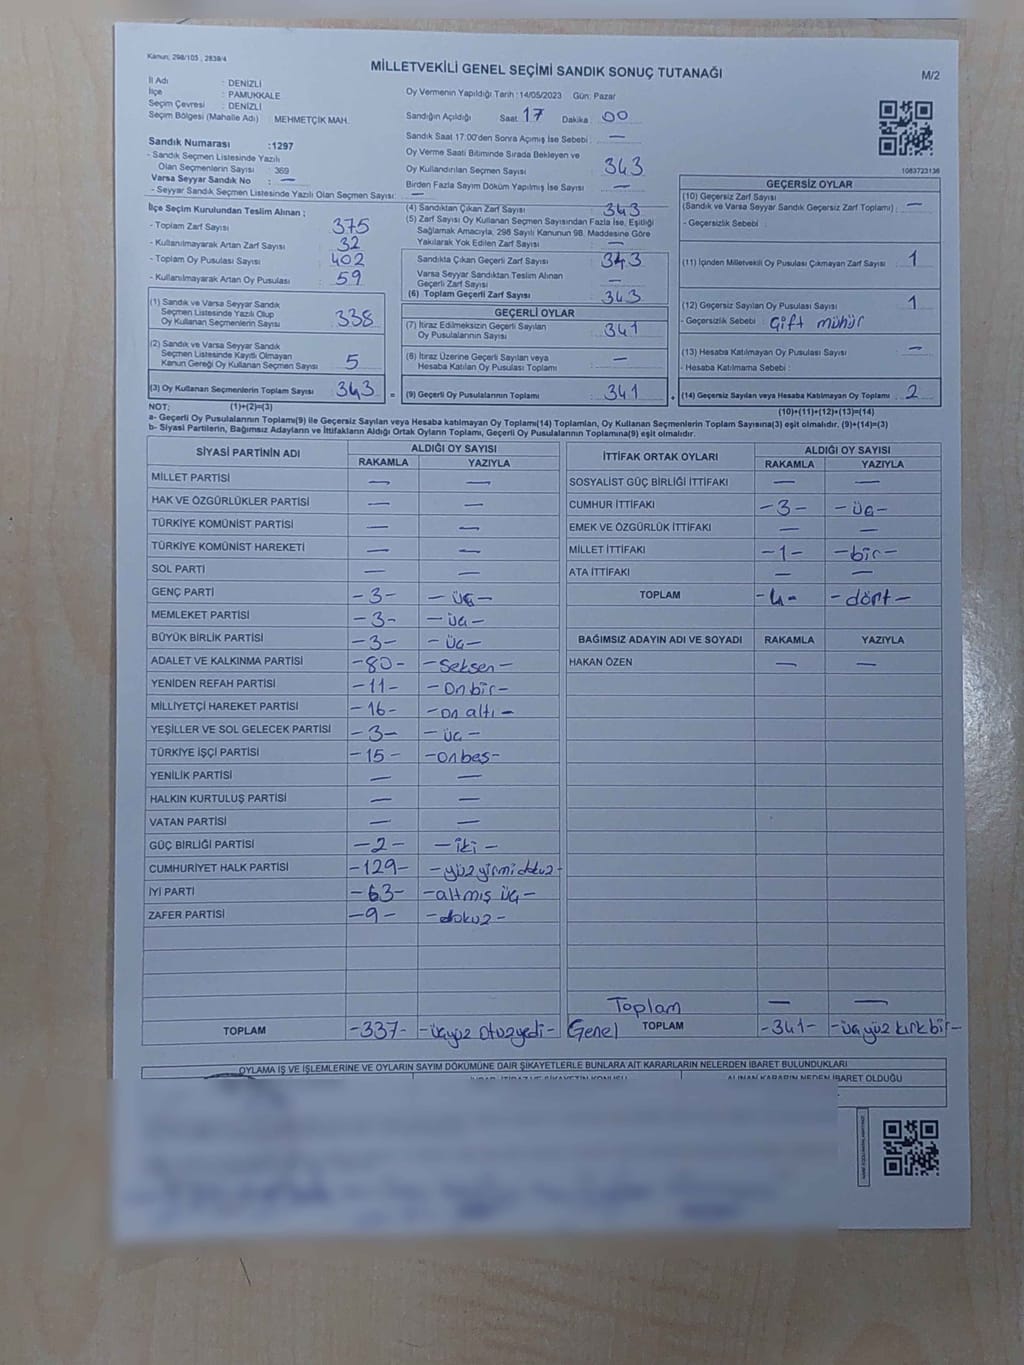 Kanun, 298/105 , 2839/4
MİLLETVEKİLİ GENEL SEÇİMİ SANDIK SONUÇ TUTANAĞI
M/2
İl Adı : DENİZLİ
İlçe : PAMUKKALE
Seçim Çevresi : DENİZLİ
Seçim Bölgesi (Mahalle Adı) : MEHMETÇİK MAH.
Oy Vermenin Yapıldığı Tarih :14/05/2023 Gün: Pazar
Sandığın Açıldığı Saat 17 Dakika 00
Sandık Saat 17:00'den Sonra Açımış İse Sebebi : —
Oy Verme Saati Bitiminde Sırada Bekleyen ve
Oy Kullandırılan Seçmen Sayısı 343
Birden Fazla Sayım Döküm Yapılmış İse Sayısı —
Sandık Numarası :1297
- Sandık Seçmen Listesinde Yazılı
Olan Seçmenlerin Sayısı : 369
Varsa Seyyar Sandık No : —
- Seyyar Sandık Seçmen Listesinde Yazılı Olan Seçmen Sayısı: —
1083723136
İlçe Seçim Kurulundan Teslim Alınan ;
- Toplam Zarf Sayısı 375
- Kullanılmayarak Artan Zarf Sayısı 32
- Toplam Oy Pusulası Sayısı 402
- Kullanılmayarak Artan Oy Pusulası 59
(1) Sandık ve Varsa Seyyar Sandık
Seçmen Listesinde Yazılı Olup
Oy Kullanan Seçmenlerin Sayısı 338
(2) Sandık ve Varsa Seyyar Sandık
Seçmen Listesinde Kayıtlı Olmayan
Kanun Gereği Oy Kullanan Seçmen Sayısı 5
(3) Oy Kullanan Seçmenlerin Toplam Sayısı 343
(4) Sandıktan Çıkan Zarf Sayısı 343
(5) Zarf Sayısı Oy Kullanan Seçmen Sayısından Fazla İse, Eşitliği
Sağlamak Amacıyla, 298 Sayılı Kanunun 98. Maddesine Göre
Yakılarak Yok Edilen Zarf Sayısı : —
Sandıkta Çıkan Geçerli Zarf Sayısı 343
Varsa Seyyar Sandıktan Teslim Alınan
Geçerli Zarf Sayısı —
(6) Toplam Geçerli Zarf Sayısı 343
GEÇERLİ OYLAR
(7) İtiraz Edilmeksizin Geçerli Sayılan
Oy Pusulalarının Sayısı 341
(8) İtiraz Üzerine Geçerli Sayılan veya
Hesaba Katılan Oy Pusulası Toplamı —
= (9) Geçerli Oy Pusulalarının Toplamı 341
GEÇERSİZ OYLAR
(10) Geçersiz Zarf Sayısı
(Sandık ve Varsa Seyyar Sandık Geçersiz Zarf Toplamı) : —
- Geçersizlik Sebebi :
(11) İçinden Milletvekili Oy Pusulası Çıkmayan Zarf Sayısı 1
(12) Geçersiz Sayılan Oy Pusulası Sayısı 1
- Geçersizlik Sebebi : Çift mühür
(13) Hesaba Katılmayan Oy Pusulası Sayısı —
- Hesaba Katılmama Sebebi :
+ (14) Geçersiz Sayılan veya Hesaba Katılmayan Oy Toplamı 2
NOT: (1)+(2)=(3)
(10)+(11)+(12)+(13)=(14)
a- Geçerli Oy Pusulalarının Toplamı(9) ile Geçersiz Sayılan veya Hesaba katılmayan Oy Toplamı(14) Toplamları, Oy Kullanan Seçmenlerin Toplam Sayısına(3) eşit olmalıdır. (9)+(14)=(3)
b- Siyasi Partilerin, Bağımsız Adayların ve İttifakların Aldığı Ortak Oyların Toplamı, Geçerli Oy Pusulalarının Toplamına(9) eşit olmalıdır.
SİYASİ PARTİNİN ADI ALDIĞI OY SAYISI
RAKAMLA YAZIYLA
MİLLET PARTİSİ — —
HAK VE ÖZGÜRLÜKLER PARTİSİ — —
TÜRKİYE KOMÜNİST PARTİSİ — —
TÜRKİYE KOMÜNİST HAREKETİ — —
SOL PARTİ — —
GENÇ PARTİ -3- -üç-
MEMLEKET PARTİSİ -3- -üç-
BÜYÜK BİRLİK PARTİSİ -3- -üç-
ADALET VE KALKINMA PARTİSİ -80- -seksen-
YENİDEN REFAH PARTİSİ -11- -onbir-
MİLLİYETÇİ HAREKET PARTİSİ -16- -on altı-
YEŞİLLER VE SOL GELECEK PARTİSİ -3- -üç-
TÜRKİYE İŞÇİ PARTİSİ -15- -onbeş-
YENİLİK PARTİSİ — —
HALKIN KURTULUŞ PARTİSİ — —
VATAN PARTİSİ — —
GÜÇ BİRLİĞİ PARTİSİ -2- -iki-
CUMHURİYET HALK PARTİSİ -129- -yüz yirmi dokuz-
İYİ PARTİ -63- -altmış üç-
ZAFER PARTİSİ -9- -dokuz-
TOPLAM -337- -üçyüz otuzyedi-
İTTİFAK ORTAK OYLARI ALDIĞI OY SAYISI
RAKAMLA YAZIYLA
SOSYALİST GÜÇ BİRLİĞİ İTTİFAKI — —
CUMHUR İTTİFAKI -3- -üç-
EMEK VE ÖZGÜRLÜK İTTİFAKI — —
MİLLET İTTİFAKI -1- -bir-
ATA İTTİFAKI — —
TOPLAM -4- -dört-
BAĞIMSIZ ADAYIN ADI VE SOYADI RAKAMLA YAZIYLA
HAKAN ÖZEN — —
Toplam — —
Genel TOPLAM -341- -üçyüz kırk bir-
OYLAMA İŞ VE İŞLEMLERİNE VE OYLARIN SAYIM DÖKÜMÜNE DAİR ŞİKAYETLERLE BUNLARA AİT KARARLARIN NELERDEN İBARET BULUNDUKLARI
ALINAN KARARIN NEDEN İBARET OLDUĞU